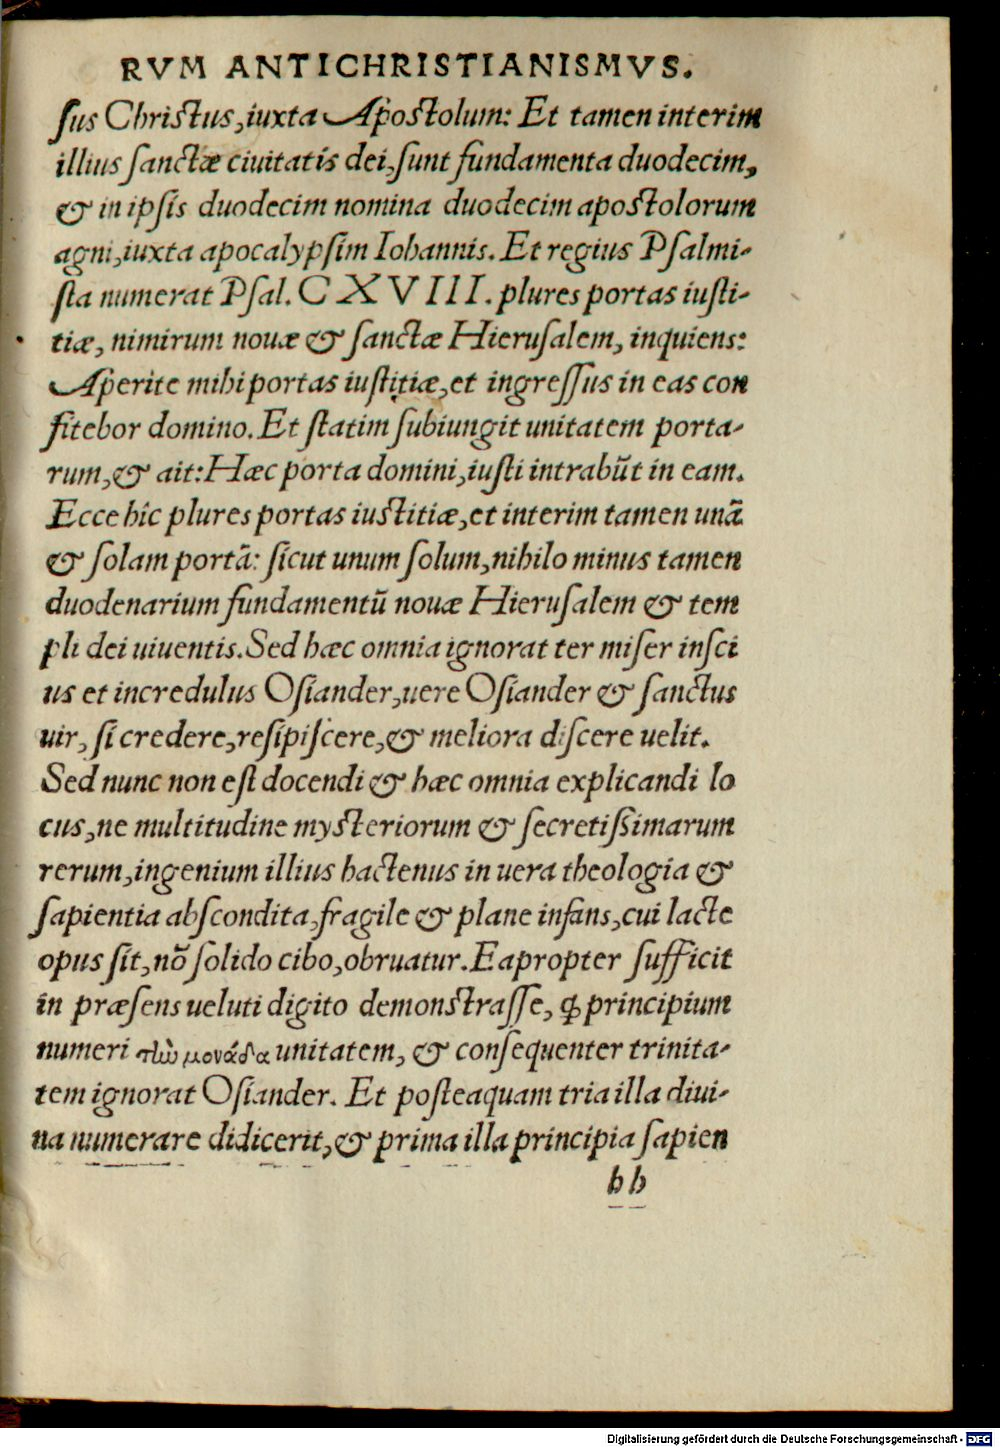 RVM ANTICHRISTIANISMVS.
ſus Chriſtus, iuxta Apoſtolum: Et tamen interim
illius ſanctæ ciuitatis dei, ſunt fundamenta duodecim,
& in ipſis duodecim nomina duodecim apoſtolorum
agni, iuxta apocalypſim Iohannis. Et regius Pſalmi-
ſta numerat Pſal. CXVIII. plures portas iuſti-
tiæ, nimirum nouæ & ſanctæ Hieruſalem, inquiens:
Aperite mihi portas iuſtitiæ, et ingreſſus in eas con
fitebor domino. Et ſtatim ſubiungit unitatem porta-
rum, & ait: Hæc porta domini, iuſti intrabūt in eam.
Ecce hîc plures portas iuſtitiæ, et interim tamen unā
& ſolam portā: ſicut unum ſolum, nihilo minus tamen
duodenarium fundamentū nouæ Hieruſalem & tem
pli dei uiuentis. Sed hæc omnia ignorat ter miſer inſci
us et incredulus Oſiander, uere Oſiander & ſanctus
uir, ſi credere, reſipiſcere, & meliora diſcere uelit.
Sed nunc non eſt docendi & hæc omnia explicandi lo
cus, ne multitudine myſteriorum & ſecretißimarum
rerum, ingenium illius hactenus in uera theologia &
ſapientia abſcondita, fragile & plane infans, cui lacte
opus ſit, nō ſolido cibo, obruatur. Eapropter ſufficit
in præſens ueluti digito demonſtraſſe, ꝙ principium
numeri τὼ μονάδα unitatem, & conſequenter trinita-
tem ignorat Oſiander. Et poſteaquam tria illa diui-
na numerare didicerit, & prima illa principia ſapien
bb
Digitalisierung gefördert durch die Deutsche Forschungsgemeinschaft - DFG